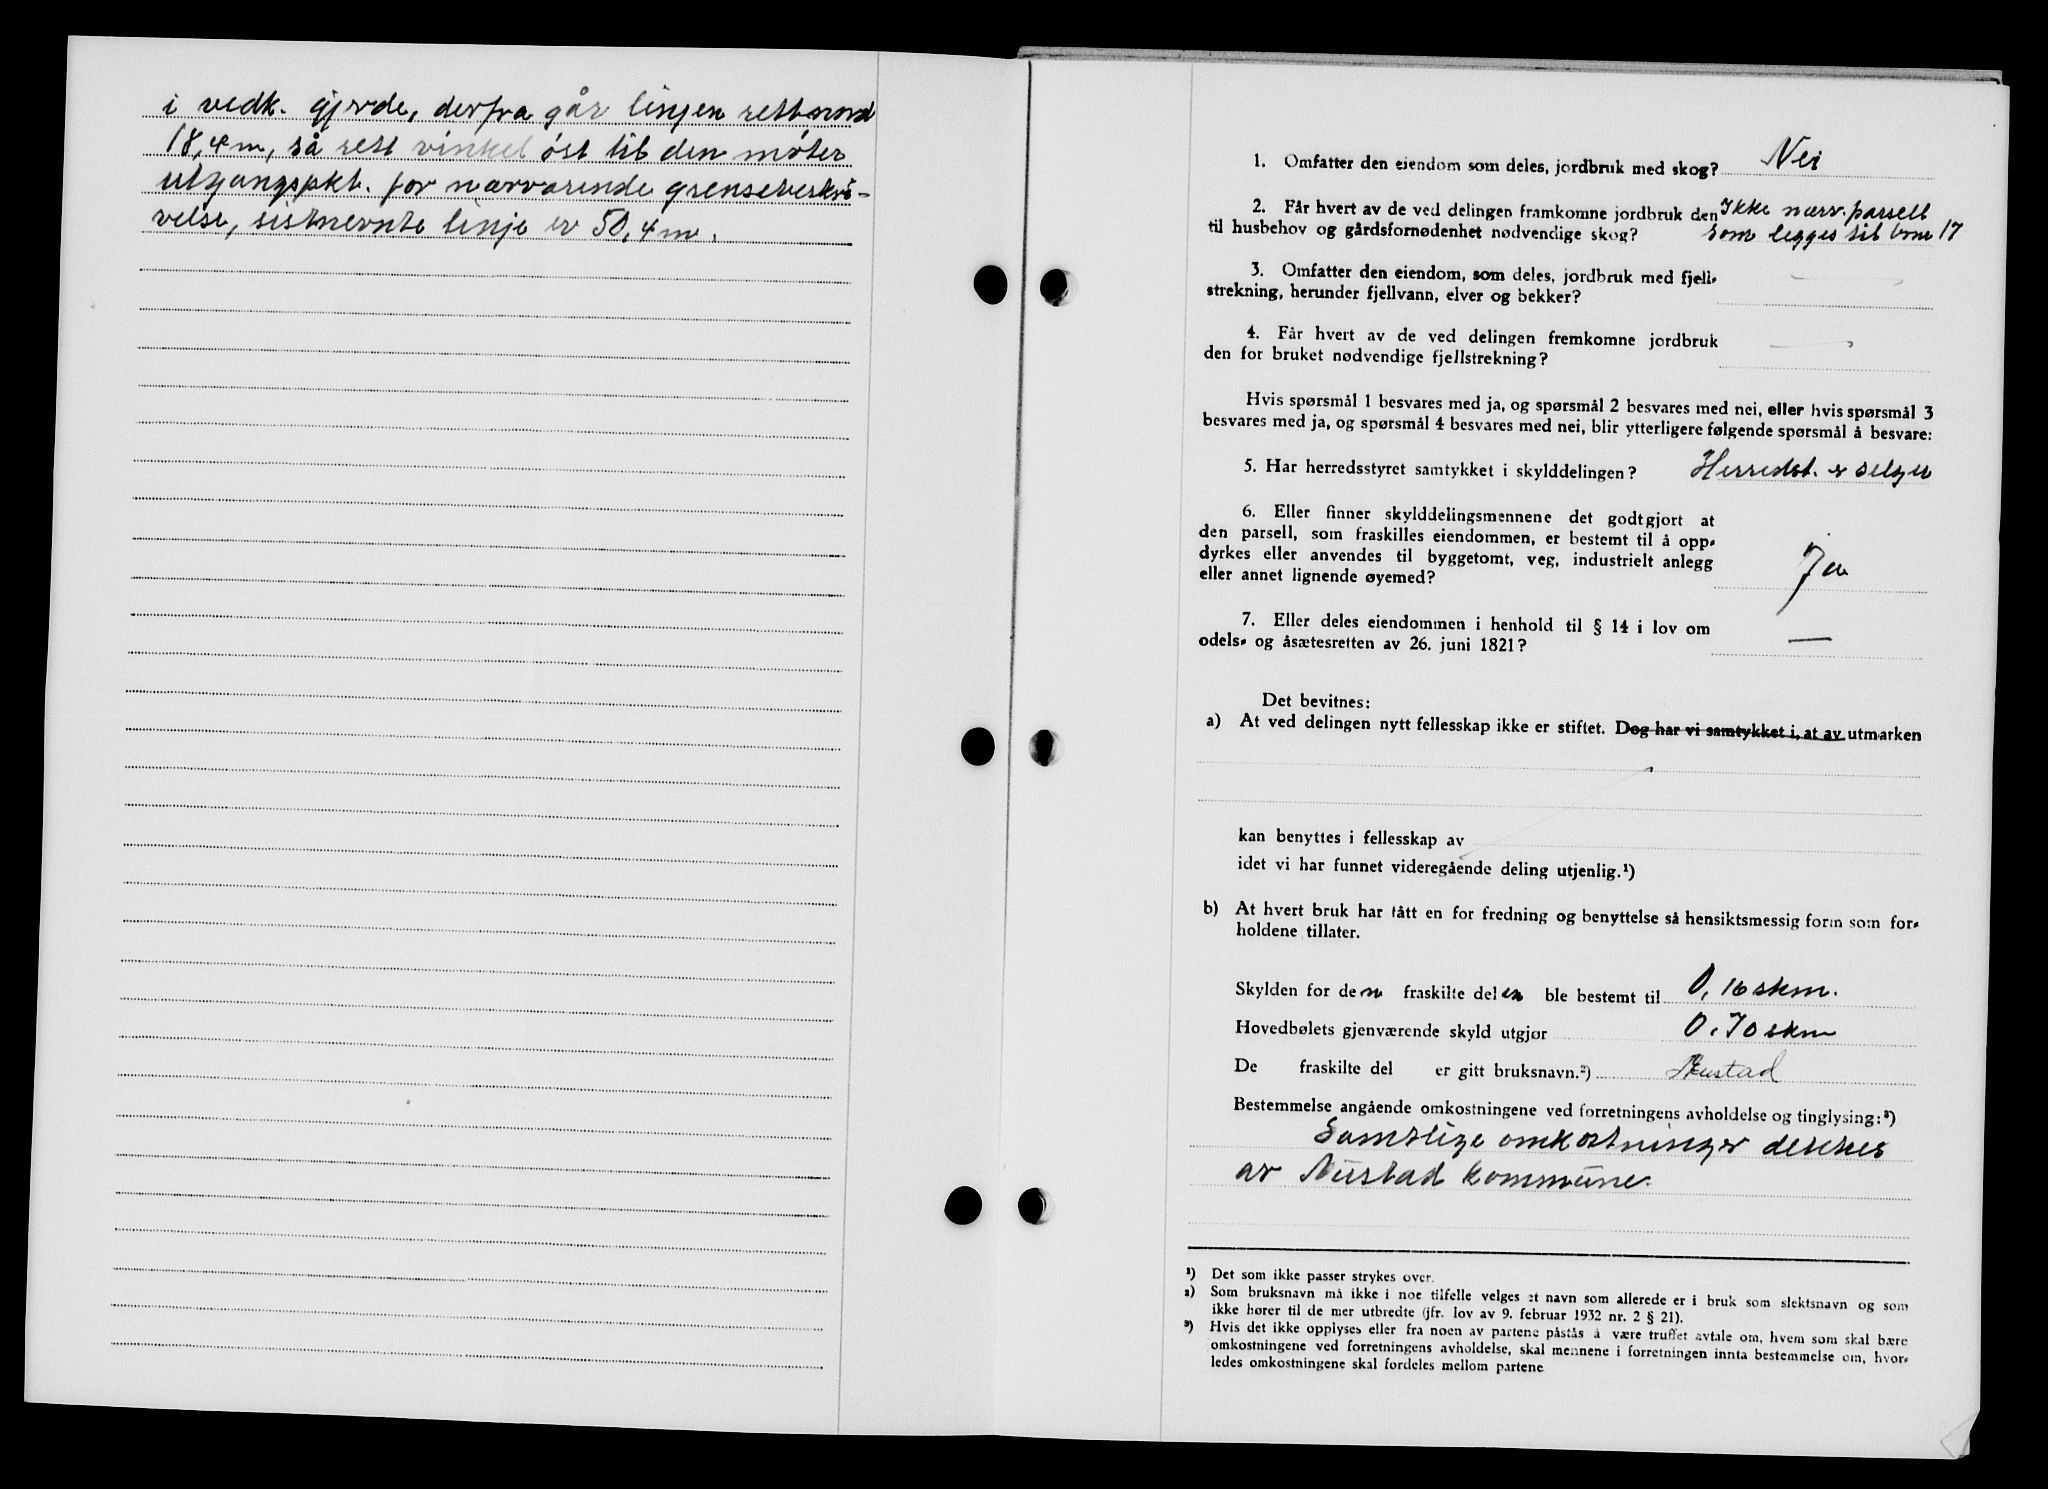 i vedk. gjerde, derfra går linjen rett nord
18,4 m, så rett vinkel öst til den möter
utgangspkt. for nærværende grensebeskri-
velse, sistnevnte linje er 50,4 m.
1. Omfatter den eiendom som deles, jordbruk med skog? Nei
2. Får hvert av de ved delingen framkomne jordbruk den Ikke nærv. parsell
til husbehov og gårdsfornødenhet nødvendige skog? som legges til brnr 17
3. Omfatter den eiendom, som deles, jordbruk med fjell-
strekning, herunder fjellvann, elver og bekker? —
4. Får hvert av de ved delingen fremkomne jordbruk
den for bruket nødvendige fjellstrekning? —
Hvis spørsmål 1 besvares med ja, og spørsmål 2 besvares med nei, eller hvis spørsmål 3
besvares med ja, og spørsmål 4 besvares med nei, blir ytterligere følgende spørsmål å besvare:
5. Har herredsstyret samtykket i skylddelingen? Herredst. er selger
6. Eller finner skylddelingsmennene det godtgjort at
den parsell, som fraskilles eiendommen, er bestemt til å opp-
dyrkes eller anvendes til byggetomt, veg, industrielt anlegg
eller annet lignende øyemed? Ja
7. Eller deles eiendommen i henhold til § 14 i lov om
odels- og åsætesretten av 26. juni 1821? —
Det bevitnes:
a) At ved delingen nytt fellesskap ikke er stiftet. Dog har vi samtykket i, at av utmarken
kan benyttes i fellesskap av
idet vi har funnet videregående deling utjenlig.¹)
b) At hvert bruk har fått en for fredning og benyttelse så hensiktsmessig form som for-
holdene tillater.
Skylden for den fraskilte delen ble bestemt til 0,16 skm.
Hovedbølets gjenværende skyld utgjør 0,70 skm
De fraskilte del er gitt bruksnavn.²)
Bestemmelse angående omkostningene ved forretningens avholdelse og tinglysing:³)
Samtlige omkostninger dekkes
av kommune.
¹) Det som ikke passer strykes over.
²) Som bruksnavn må ikke i noe tilfelle velges et navn som allerede er i bruk som slektsnavn og som
ikke hører til de mer utbredte (jfr. lov av 9. februar 1932 nr. 2 § 21).
³) Hvis det ikke opplyses eller fra noen av partene påstås å være truffet avtale om, hvem som skal bære
omkostningene ved forretningens avholdelse, skal mennene i forretningen innta bestemmelse om, hvor-
ledes omkostningene skal fordeles mellom partene